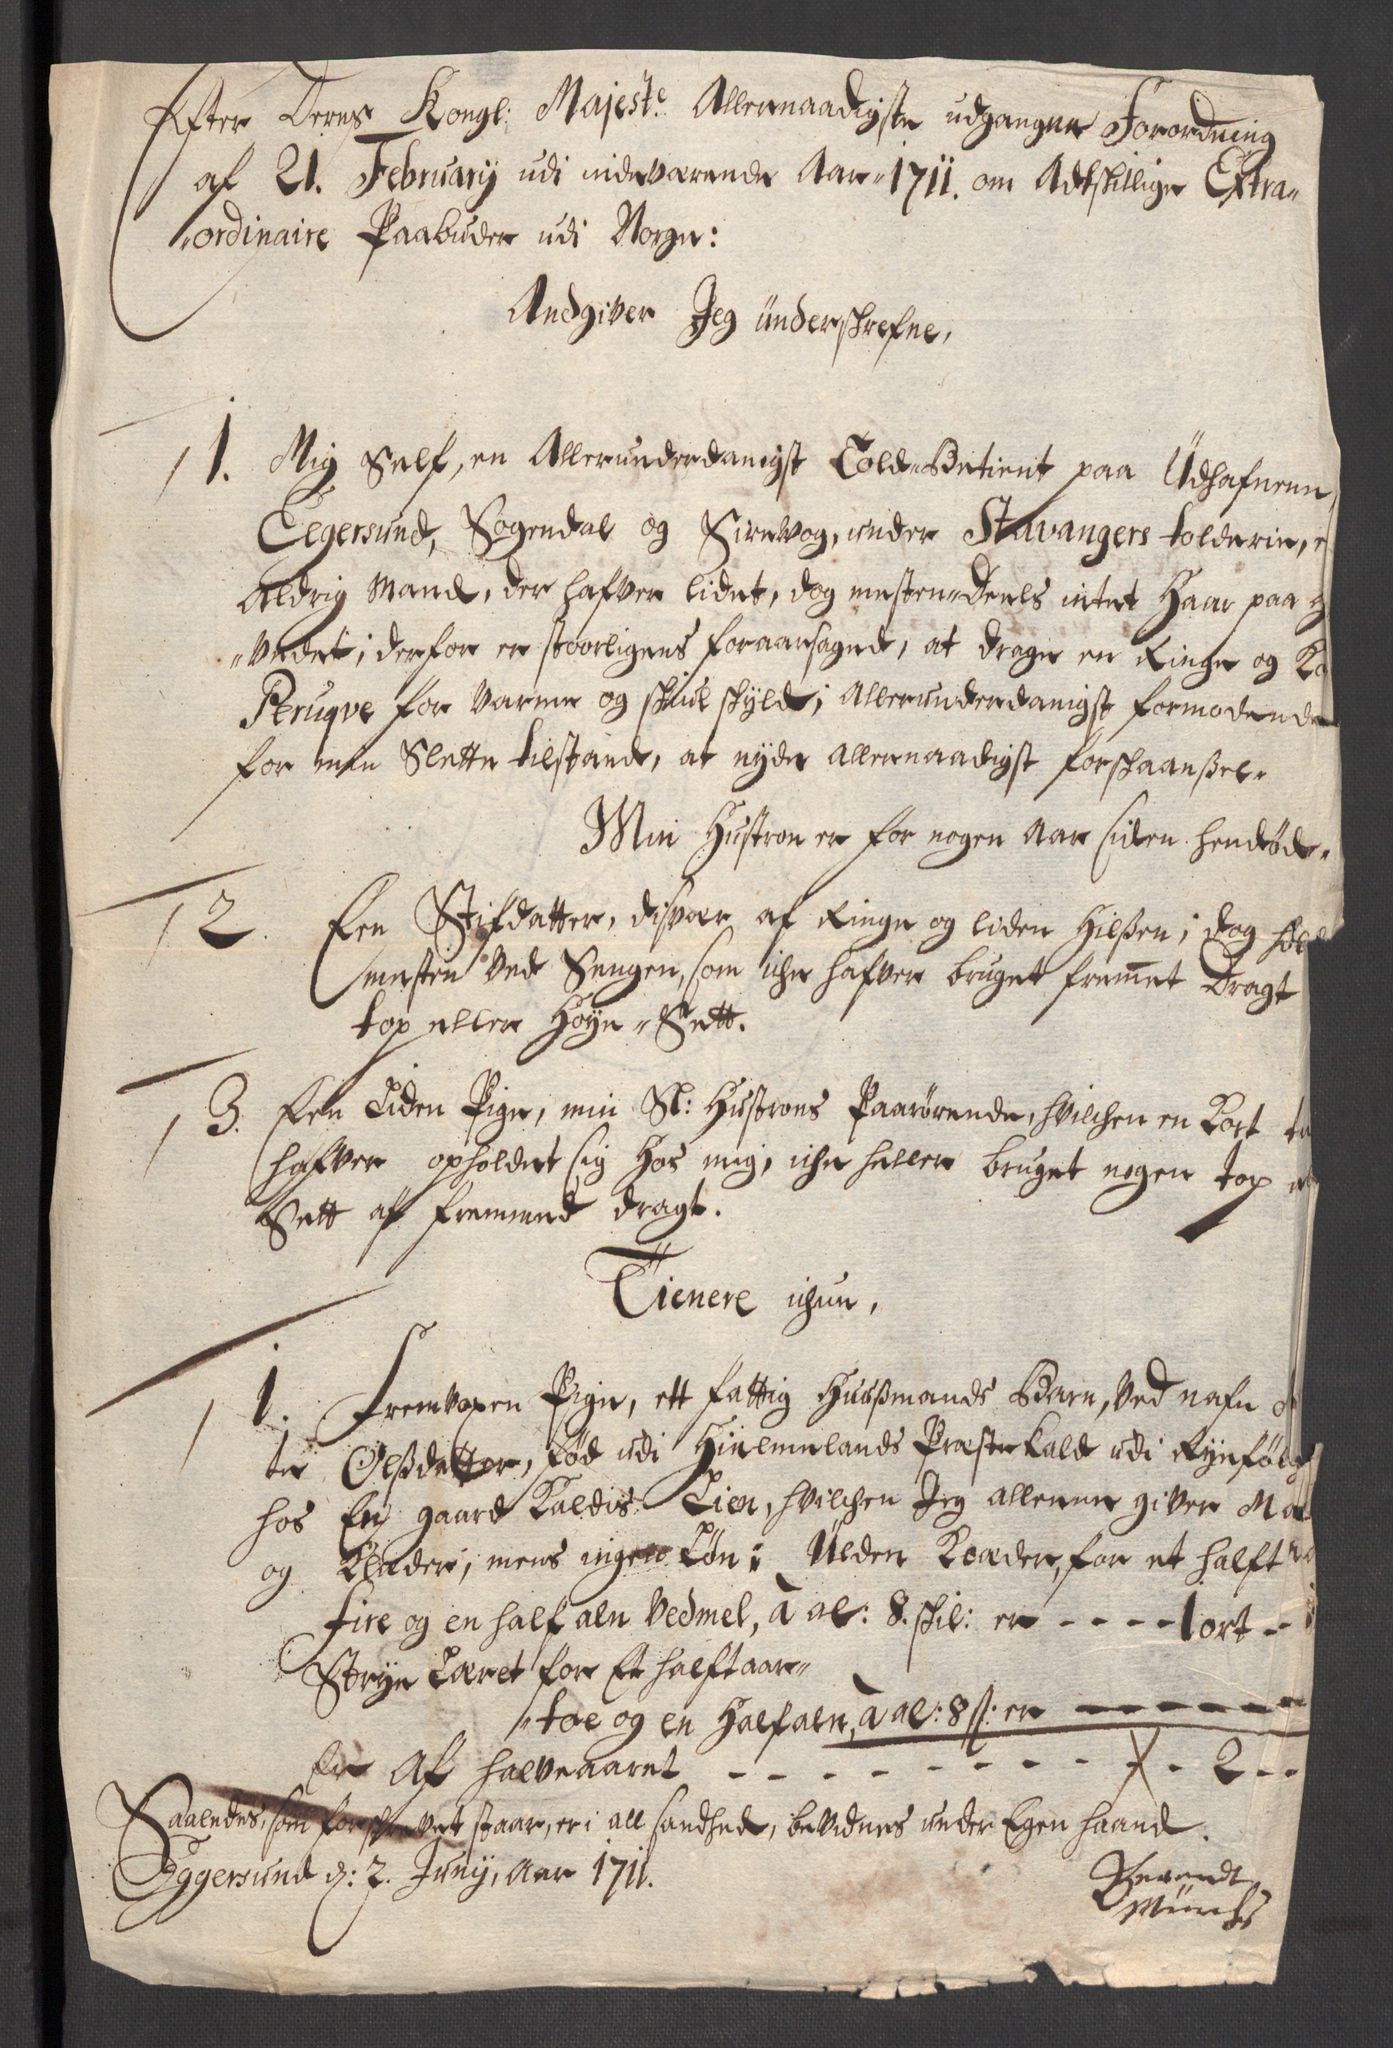 Efter Deres Kongl: Majest:s Allernaadigste udgangne Forordning
af 21. February udi nidwærende Aar 1711. om Adtskillige Extra-
ordinaire Paabuder udi Norge:
Andgiver Jeg ünderskrefne,
1. Mig Self, en Allerunderdanigst Told-Betient paa Üdhafnene,
Eegersund, Sogendal og Sirewog, under Stavangers tolderie,
Aldrig Mand, der hafver lidet, dog mesten-Deels intet Haar paa H
vedet; derfor er stoorligens foraarsaget, at drage en Ringe og Ko
Peruqve for Varme og skiul skyld; Allerunderdanigst formodende
for min Slette tilstand, at nyde allernaadigst forskaanßel.
Min Hustroe er for nogen Aar siden hendøde.
2. Een Stifdatter, disvær af Ringe og liden Hilßen; dog
mesten ved Sengen, som iche hafver bruget fremet Dragt
top eller Høye-Sett.
3. Een Liden Pige, min Sl: Hustroes Paarørende, hvilchen en Kort
hafver opholdet sig Hos mig, iche heller bruget nogen top
Sett af fremmed dragt.
Tienere ichun,
1. Fremvoxen Pige, ett fattig Huußmands Barn, ved nafn
te Olßdatter, fød udi Hielmelands Præstekald udi Ryefølche
hos En gaard Kaldis Lien, hvilchen Jeg allene giver Mad
og Klæder, mens ingen Løn; Ülden Klæder, for et halft
fire og en half aln Vedmel, à al: 8. skil: er - - - - 1 ort -
Strye Læret for Et halft aar
toe og en Half aln, à al: 8 s: er - - - - -
Er Af halve aaret - - - - - - - - 2 - -
Saaledes, som forskrevet staar, er i all sandhed, bevidnes under Egen haand.
Eggersund d: 2. Juny, Aar 1711.
Berendt
Münchs